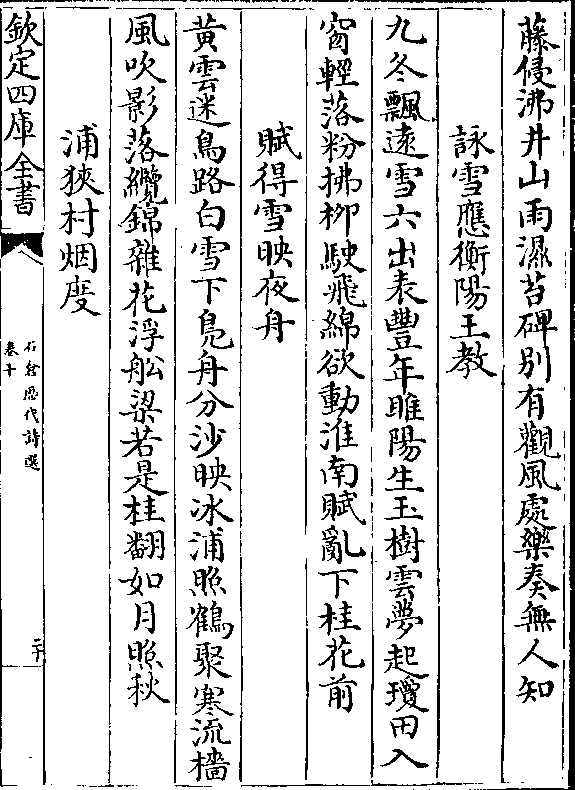 藤侵沸井山雨濕苔碑别有觀風處樂奏無人知
詠雪應衡陽王教
九冬飄逺雪六出表豐年睢陽生玉樹雲夢起瓊田入
窗輕落粉拂柳駛飛綿欲動淮南賦亂下桂花前
賦得雪映夜舟
黄雲迷鳥路白雪下鳧舟分沙映冰浦照鶴聚寒流檣
風吹影落纜錦雜花浮舩梁若是桂翻如月照秋
浦狹村烟度
欽定四庫全書
石倉歴代詩選
卷十
二十